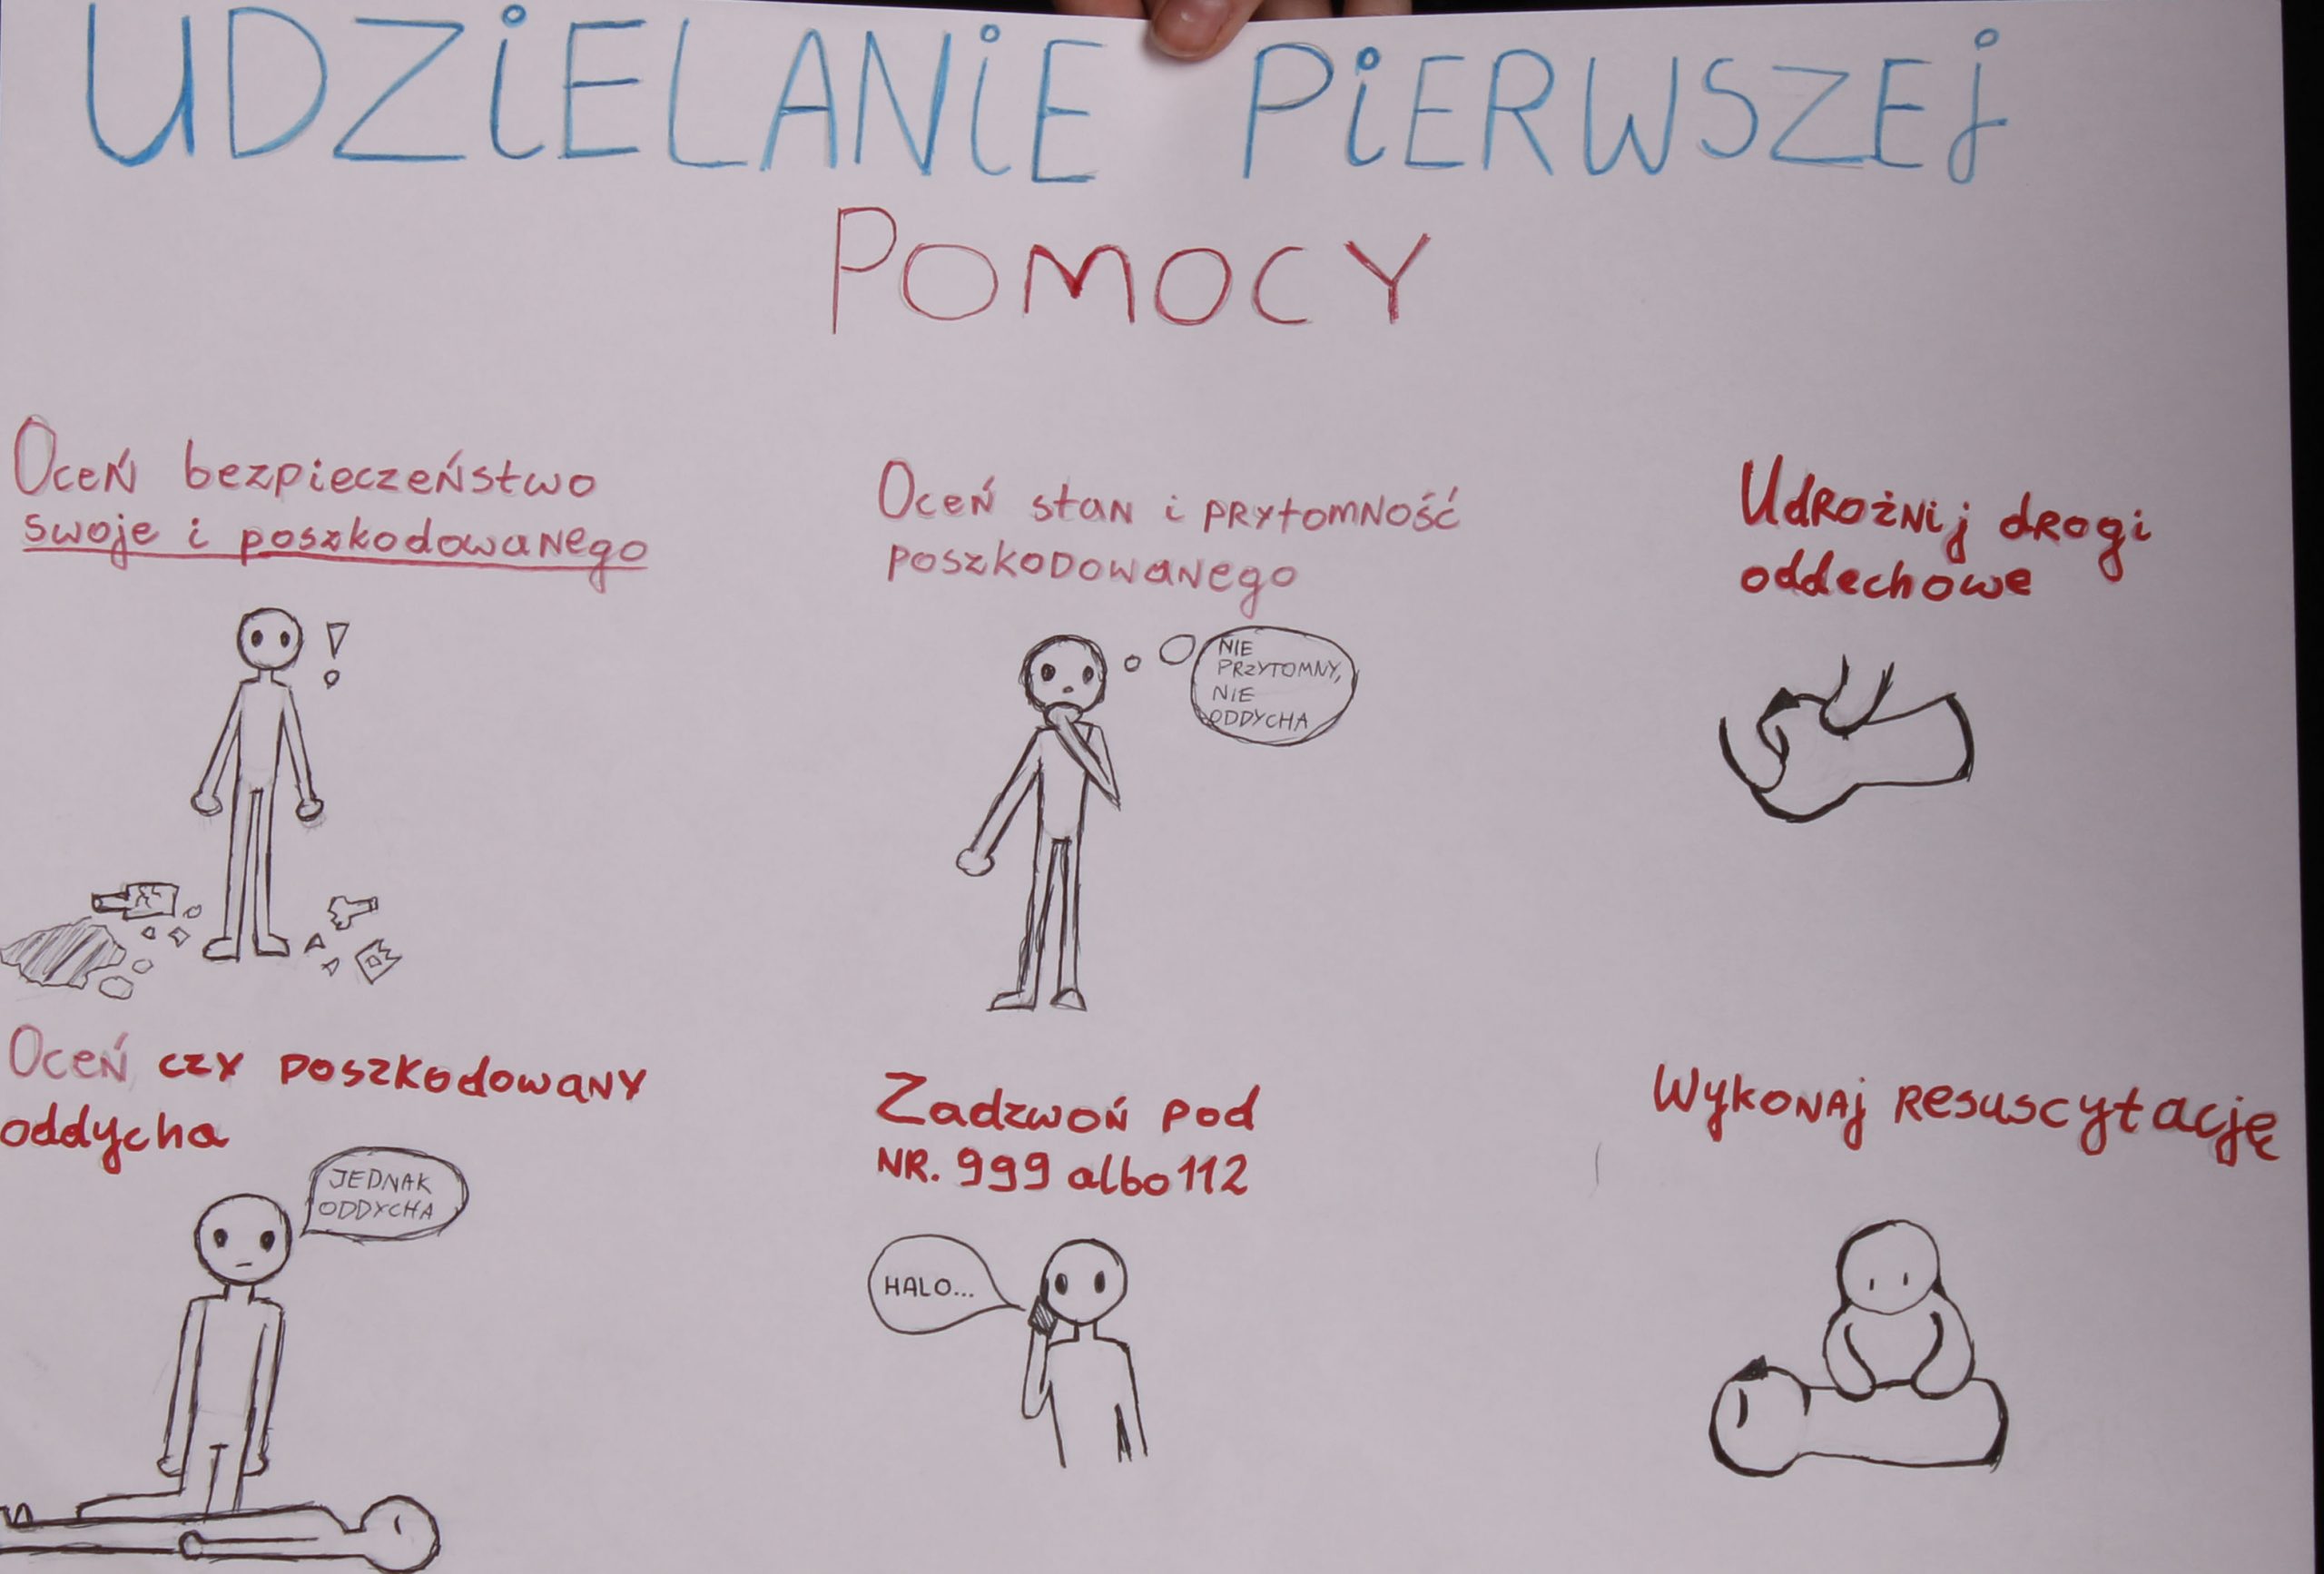 UDZiELANiE PiERWSZEJ
POMOCY
Oceń bezpieczeństwo
swoje i poszkodowanego
Oceń stan i prytomność
poszkodowanego
NIE
PRZYTOMNY,
NIE
ODDYCHA
Udrożnij drogi
oddechowe
Oceń czy poszkodowany
oddycha
JEDNAK
ODDYCHA
Zadzwoń pod
NR. 999 albo 112
HALO...
Wykonaj resuscytację